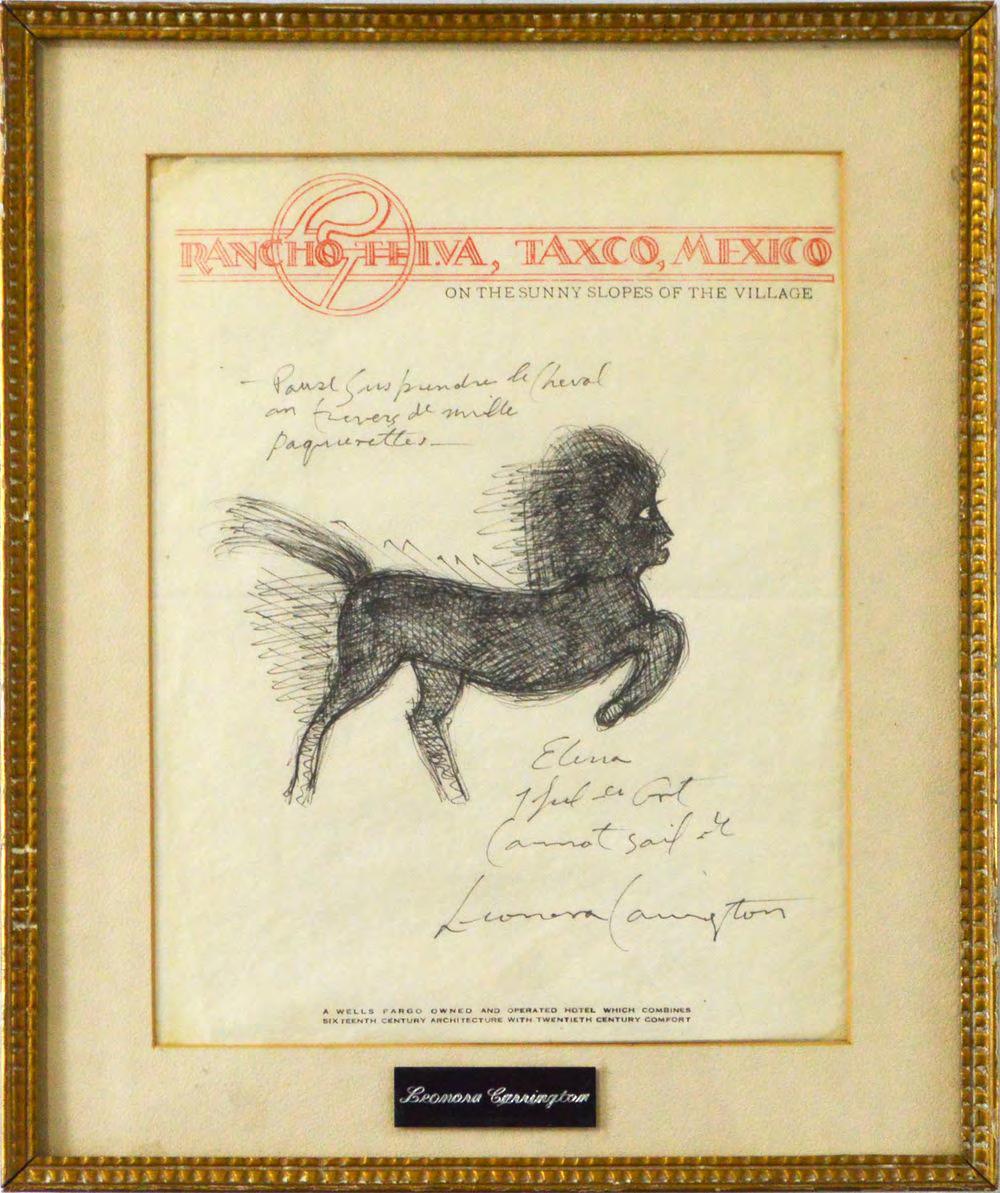 RANCHO TELVA, TAXCO, MEXICO
ON THE SUNNY SLOPES OF THE VILLAGE
le Cheval
de mille
paquerettes—
Elena
Cannot sail it
Leonora Carrington
A WELLS FARGO OWNED AND OPERATED HOTEL WHICH COMBINES
SIXTEENTH CENTURY ARCHITECTURE WITH TWENTIETH CENTURY COMFORT
Leonora Carrington